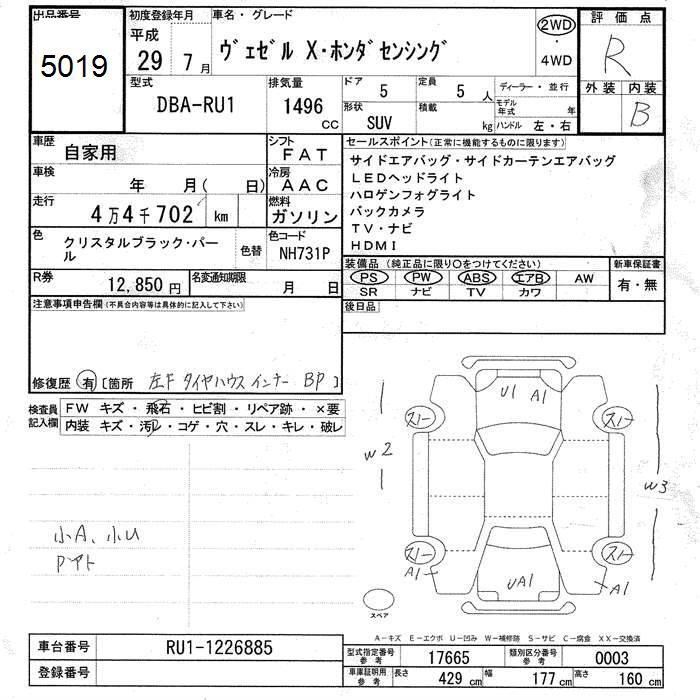 出品番号 初度登録年月 車名・グレード 評価点
5019 平成 29 7月 ヴェゼル X・ホンダセンシング 2WD・4WD R
外装 内装 B
型式 排気量 ドア 5 定員 5人 ディーラー・並行
DBA-RU1 1496cc 形状 SUV 積載 kg モデル年式 年 ハンドル 左・右
車歴 自家用 シフト FAT セールスポイント(正常に機能するものに限ります)
車検 年 月( 日) 冷房 AAC サイドエアバッグ・サイドカーテンエアバッグ
LEDヘッドライト
走行 4万4千702 km 燃料 ガソリン ハロゲンフォグライト
バックカメラ
色 クリスタルブラック・パール 色替 色コード NH731P TV・ナビ
HDMI
装備品 (純正品に限り○をつけてください) 新車保証書
R券 12,850円 名変通知期限 月 日 PS PW ABS エアB AW 有・無
SR ナビ TV カワ
注意事項申告欄(不具合内容等は具体的に記入して下さい) 後日品
修復歴 有 [箇所 左F タイヤハウスインナー BP ]
検査員記入欄 FW キズ・飛石・ヒビ割・リペア跡・×要
内装 キズ・汚レ・コゲ・穴・スレ・キレ・破レ
U1 A1
スリー スリー
W2 W3
小A、小U
スリー スリー
A1 UA1 A1
スペア
A-キズ E-エクボ U-凹み W-補修跡 S-サビ C-腐食 XX-交換済
車台番号 RU1-1226885 型式指定番号 参考 17665 類別区分番号 参考 0003
登録番号 車庫証明用 参考 長さ 429cm 幅 177cm 高さ 160cm